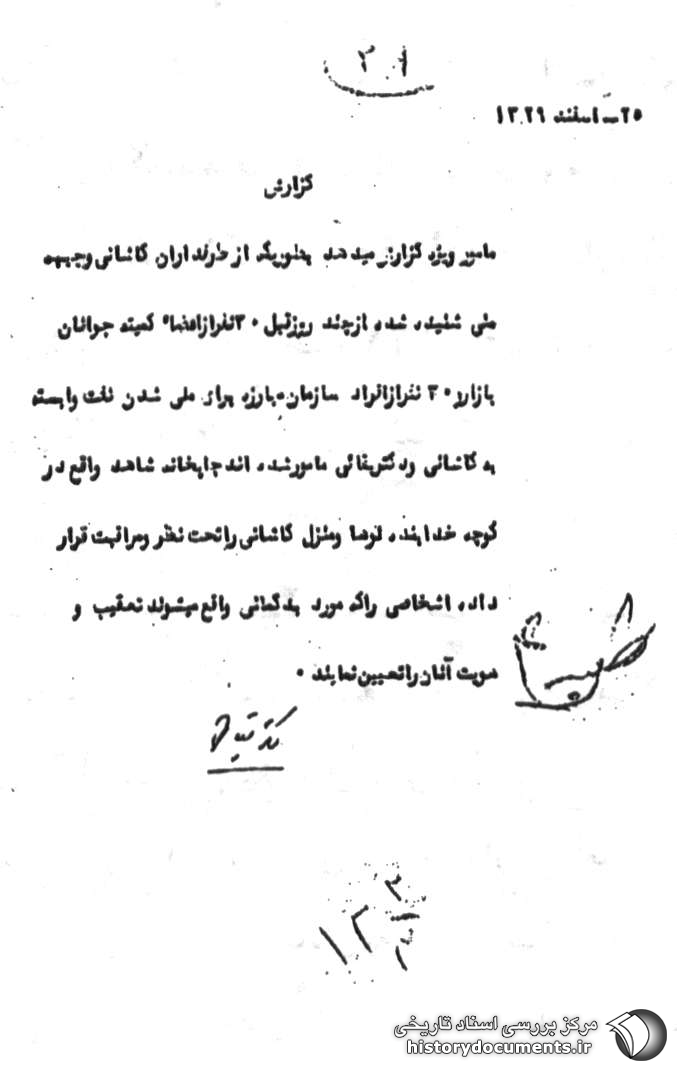 ۲۵ـ اسفند ۱۳۲۹
گزارش
مامور ویژه گزارش میدهد بطوریکه از طرفداران کاشانی وجبهه
ملی شنیده شده ازچند روزقبل ۳۰نفرازاعضاء کمیته جوانان
بازارو۳۰ نفرازافراد سازمان مبارزه برای ملی شدن نفت وابسته
به کاشانی ودکتربقائی مامورشده اند چاپخانه شاهد واقع در
کوچه خدابنده لوها ومنزل کاشانی راتحت نظر ومراقبت قرار
داده اشخاصی راکه مورد بدگمانی واقع میشوند تعقیب و
هویت آنان راتعیین نمایند ۰
مرکز بررسی اسناد تاریخی
historydocuments.ir